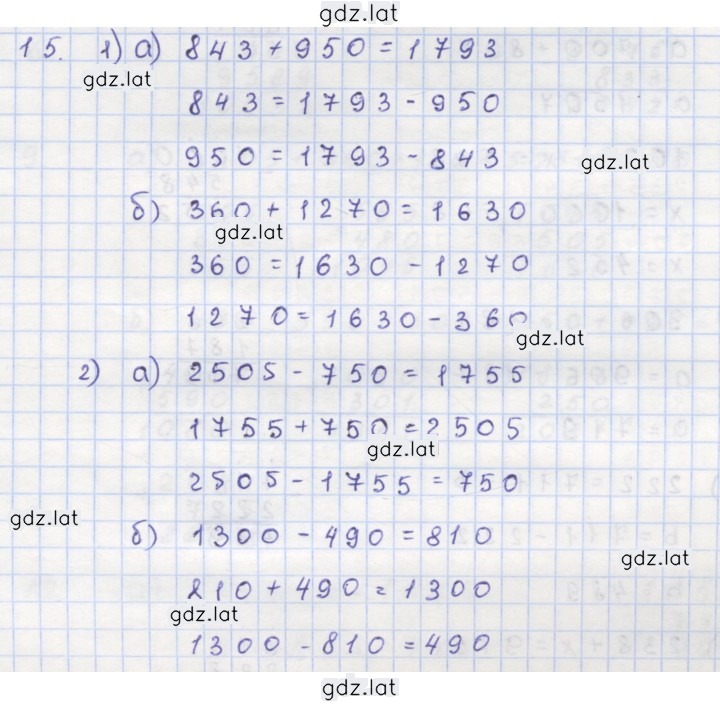 gdz.lat
15. 1) а) 843 + 950 = 1793
gdz.lat
843 = 1793 - 950
950 = 1793 - 843
gdz.lat
б) 360 + 1270 = 1630
gdz.lat
360 = 1630 - 1270
1270 = 1630 - 360
gdz.lat
2) а) 2505 - 750 = 1755
1755 + 750 = 2505
gdz.lat
2505 - 1755 = 750
gdz.lat
б) 1300 - 490 = 810
gdz.lat
810 + 490 = 1300
gdz.lat
1300 - 810 = 490
gdz.lat